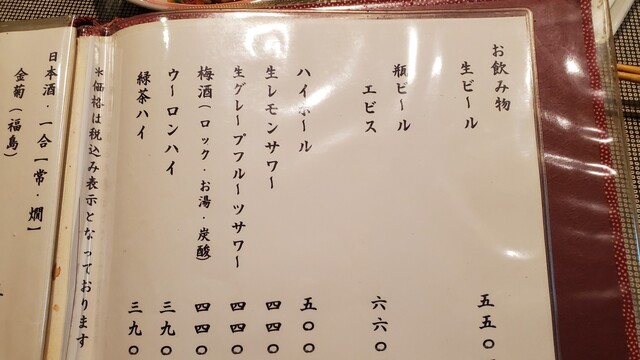 お飲み物
生ビール 五五〇
瓶ビール
エビス 六六〇
ハイボール 五〇〇
生レモンサワー 四四〇
生グレープフルーツサワー 四四〇
梅酒(ロック・お湯・炭酸) 四四〇
ウーロンハイ 三九〇
緑茶ハイ 三九〇
*価格は税込み表示となっております
日本酒・一合一常・燗】
金菊(福島)